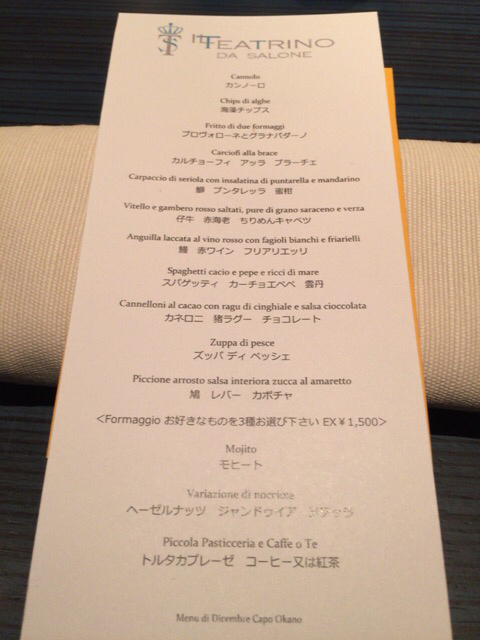 IL TEATRINO
DA SALONE
Cannolo
カンノーロ
Chips di alghe
海藻チップス
Fritto di due formaggi
プロヴォローネとグラナパダーノ
Carciofi alla brace
カルチョーフィ アッラ ブラーチェ
Carpaccio di seriola con insalatina di puntarella e mandarino
鰤 プンタレッラ 蜜柑
Vitello e gambero rosso saltati, pure di grano saraceno e verza
仔牛 赤海老 ちりめんキャベツ
Anguilla laccata al vino rosso con fagioli bianchi e friarielli
鰻 赤ワイン フリアリエッリ
Spaghetti cacio e pepe e ricci di mare
スパゲッティ カーチョエペペ 雲丹
Cannelloni al cacao con ragu di cinghiale e salsa cioccolata
カネロニ 猪ラグー チョコレート
Zuppa di pesce
ズッパ ディ ペッシェ
Piccione arrosto salsa interiora zucca al amaretto
鳩 レバー カボチャ
<Formaggio お好きなものを3種お選び下さい EX¥1,500>
Mojito
モヒート
Variazione di nocciole
ヘーゼルナッツ ジャンドゥイア
Piccola Pasticceria e Caffe o Te
トルタカプレーゼ コーヒー又は紅茶
Menu di Dicembre Capo Okano